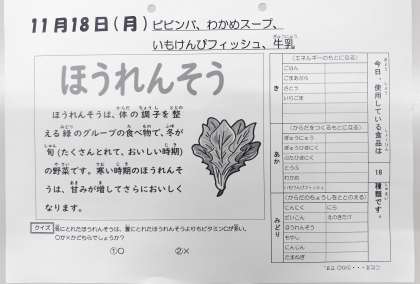 11月18日(月) ビビンバ、わかめスープ、
いもけんぴフィッシュ、牛乳
ほうれんそう
ほうれんそうは、体の調子を整
える緑のグループの食べ物で、冬が
旬(たくさんとれて、おいしい時期)
の野菜です。寒い時期のほうれんそ
うは、甘みが増してさらにおいしく
なります。
クイズ
にとれたほうれんそうは、夏にとれたほうれんそうよりもビタミンCが多い。
○か×かどちらでしょうか?
①○ ②×
今日、使用している食品は
18
種類です。
き
(エネルギーのもとになる)
ごはん
ごまあぶら
さとう
いりごま
あか
(からだをつくるもとになる)
ぎゅうにゅう
とうふ
わかめ
いもけんぴフィッシュ
みどり
(からだのちょうしをととのえる)
にんにく にら
だいこん えのきたけ
ほうれんそう
もやし
にんじん
たまねぎ